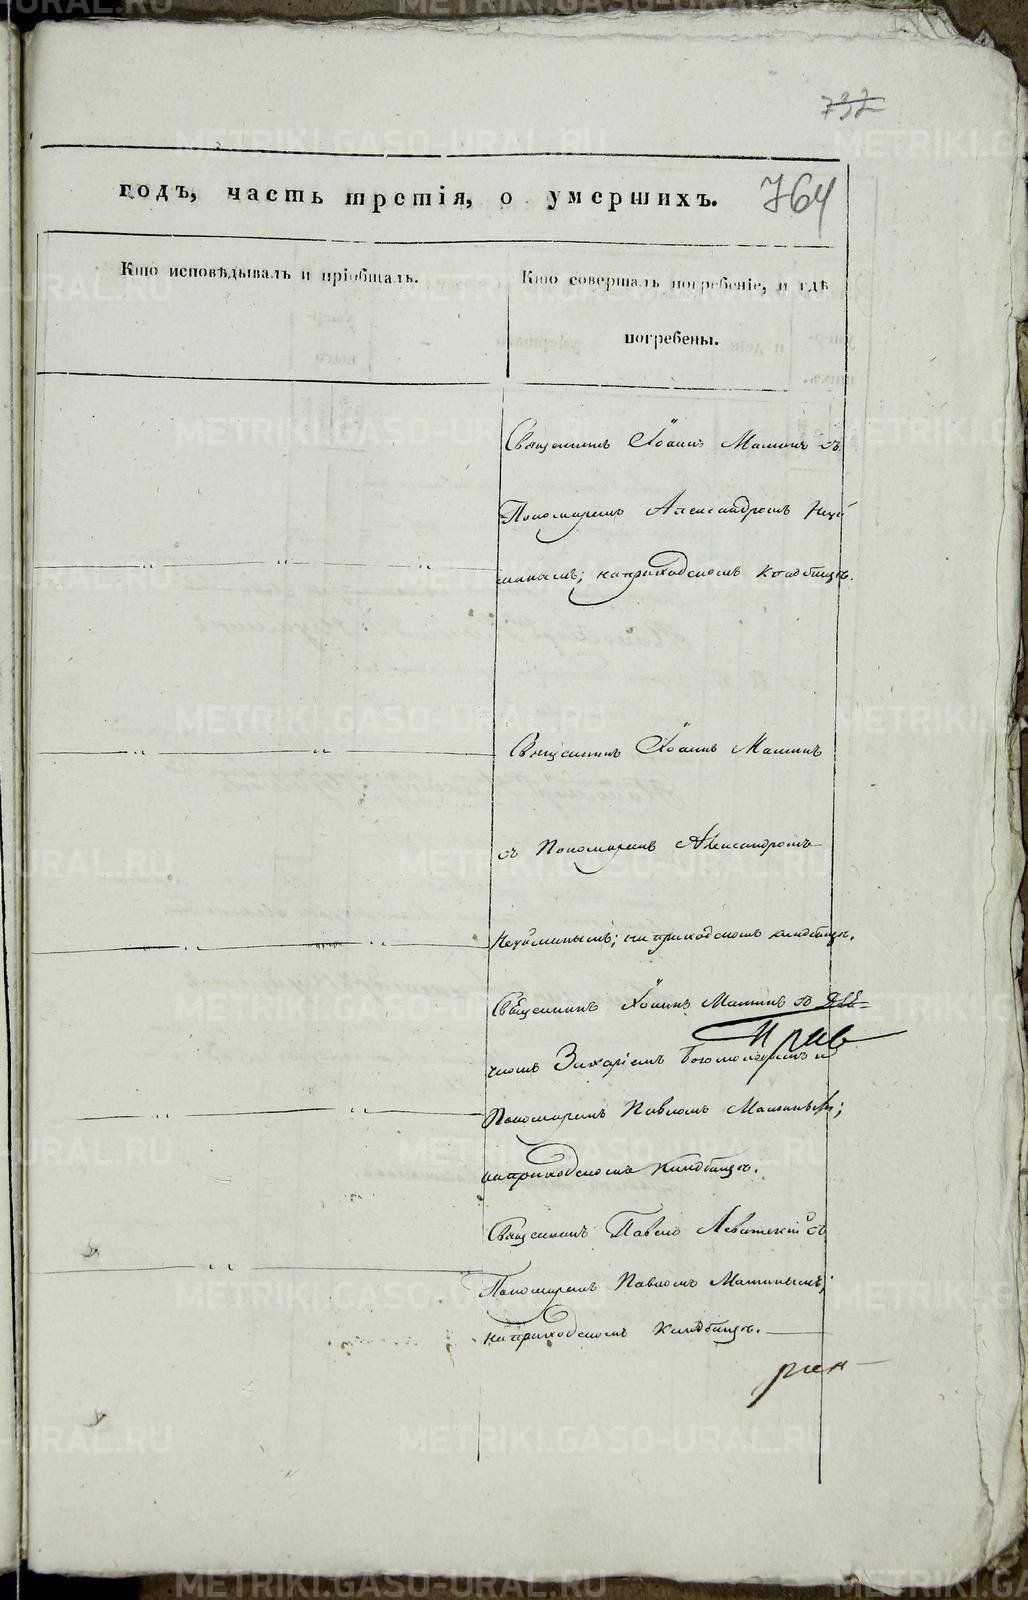 732
годъ, часть третія, о умершихъ. 764
Кто исповѣдывалъ и пріобщалъ.
Кто совершалъ погребеніе, и гдѣ
погребены.
Священникъ Іоаннъ Мамин съ
Пономаремъ Александромъ
на приходскомъ кладбищѣ.
Священникъ Іоаннъ Маминъ
съ Пономаремъ Александромъ
на приходскомъ кладбищѣ.
Священникъ Іоаннъ Маминъ съ
Захаріемъ Богомоловымъ и
Пономаремъ Павломъ Маминымъ;
на приходскомъ кладбищѣ.
Священникъ Павелъ Левитскій съ
Пономаремъ Павломъ Маминымъ;
на приходскомъ кладбищѣ.
METRIKI.GASO-URAL.RU